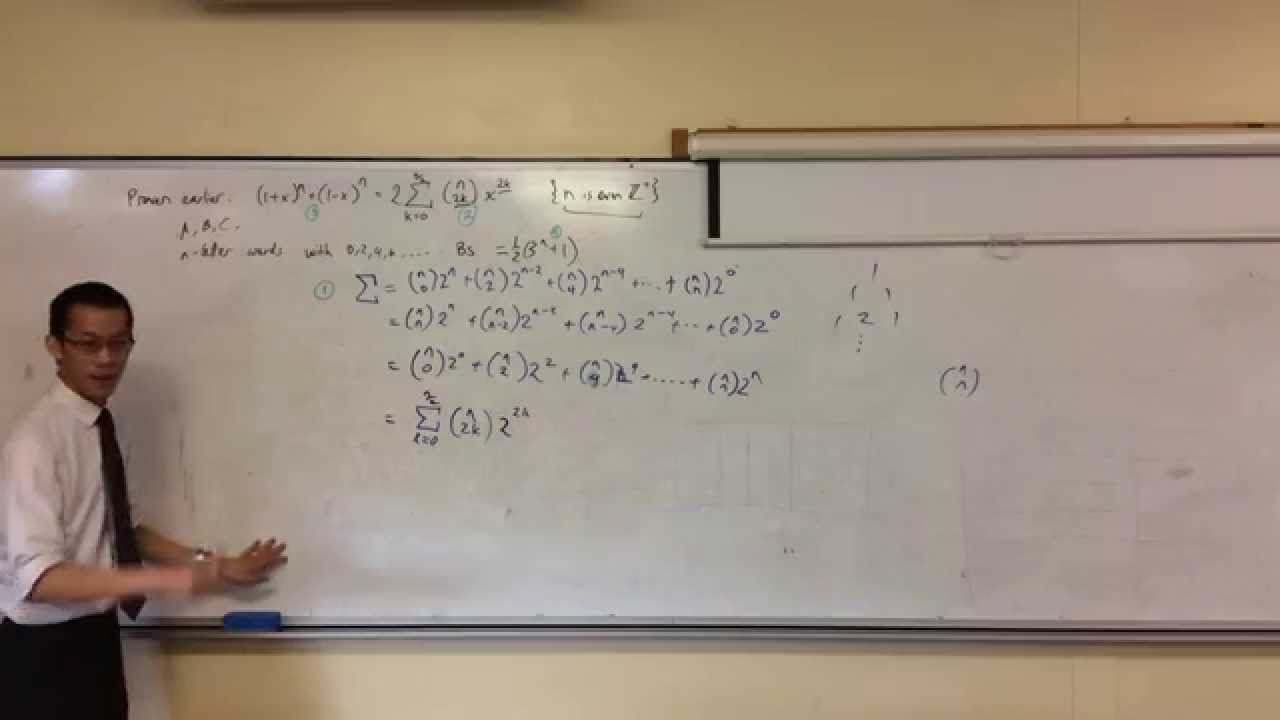 Proven earlier: (1+x)ⁿ+(1-x)ⁿ = 2 Σ_{k=0}^{n/2} (n 2k) x^{2k} {n is even ℤ⁺}
③ ②
A, B, C.
n-letter words with 0,2,4,..... Bs = ½(3ⁿ+1)
① Σ = (n 0)2ⁿ + (n 2)2ⁿ⁻² + (n 4)2ⁿ⁻⁴ + ... + (n n)2⁰
= (n n)2ⁿ + (n n-2)2ⁿ⁻² + (n n-4)2ⁿ⁻⁴ + ... + (n 0)2⁰
= (n 0)2⁰ + (n 2)2² + (n 4)2⁴ + ..... + (n n)2ⁿ
= Σ_{k=0}^{n/2} (n 2k) 2^{2k}
1
1 1
1 2 1
⋮
(n n)